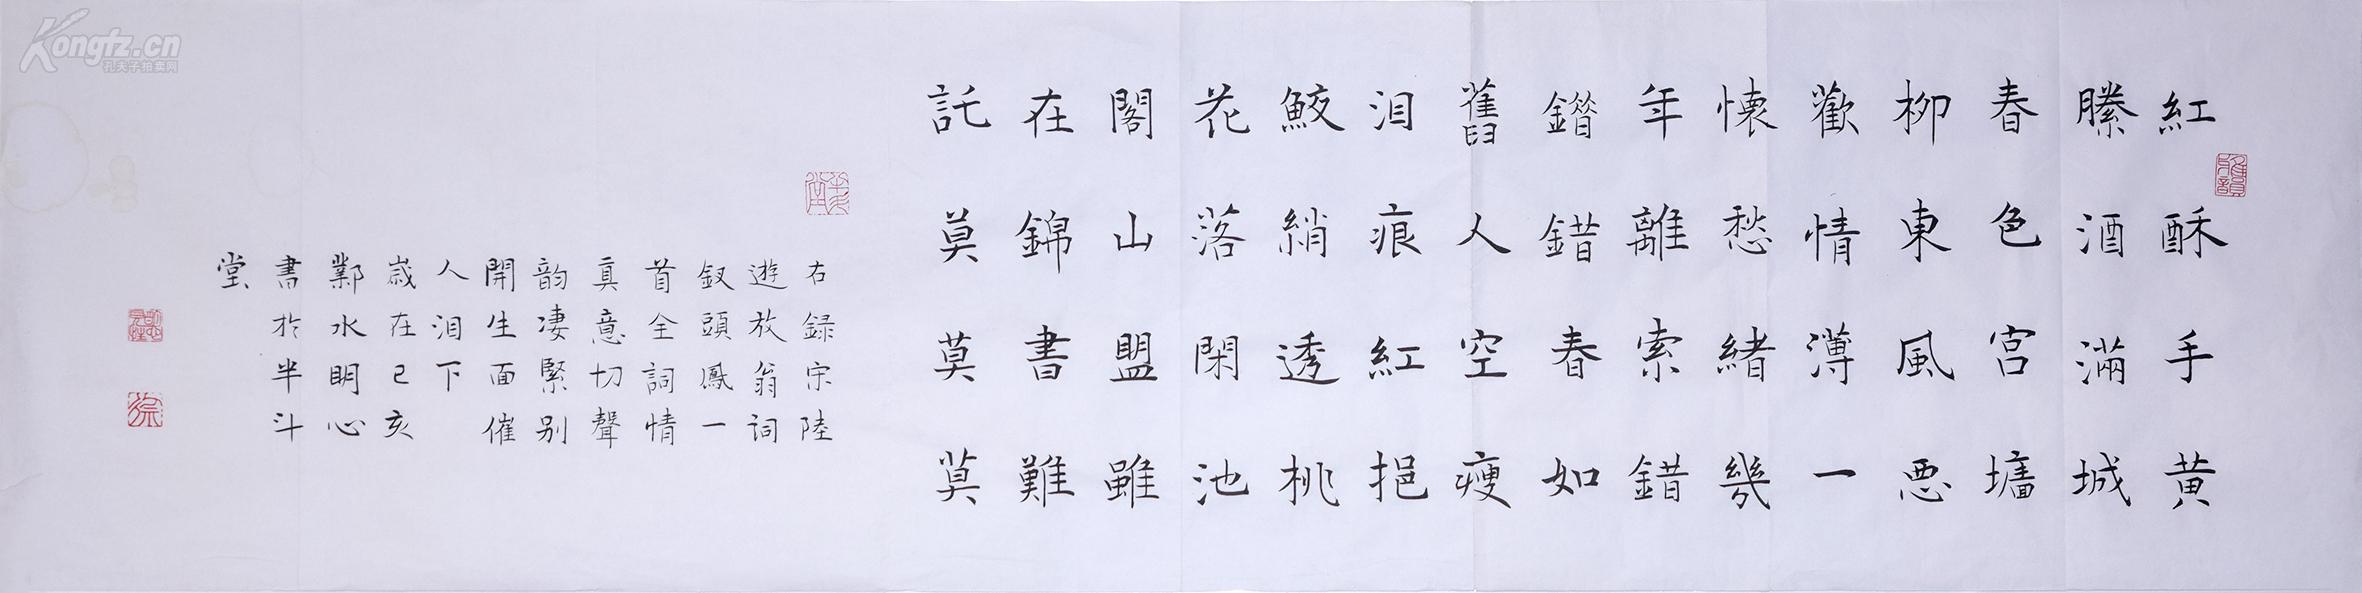 紅酥手黄
縢酒滿城
春色宫墻
柳東風惡
歡情薄一
懷愁緒幾
年離索錯
錯錯春如
舊人空瘦
泪痕紅挹
鮫綃透桃
花落閑池
閣山盟雖
在錦書難
託莫莫莫
右録宋陸
遊放翁詞
釵頭鳳一
首全詞情
真意切聲
韵凄緊别
開生面催
人泪下
歲在已亥
鄴水明心
書於半斗
堂
Kongfz.cn
孔夫子拍卖网